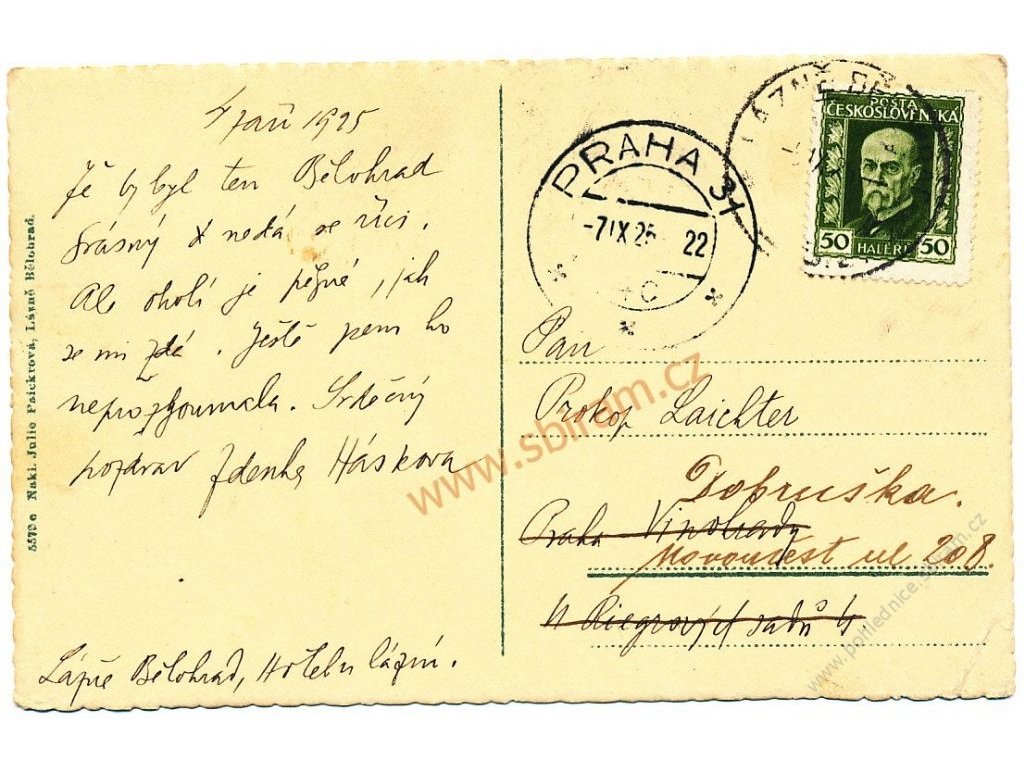 4 září 1925
Že by byl ten Bělohrad
krásný nedá se říci.
Ale okolí je pěkné, jak
se mi zdá. Ještě jsem ho
neprozkoumala. Srdečný
pozdrav Zdenka Háskova
Lázně Bělohrad, Hotel lázní.
5570 a Nakl. Julie Paickrová, Lázně Bělohrad.
PRAHA 31
-7.IX.25 22
LÁZNĚ BĚ
POŠTA
ČESKOSLOVENSKA
50 HALÉŘŮ 50
Pan
Prokop Laichter
Dobruška.
Praha Vinohrady
Novoměst ul 208.
U Riegrových sadů 4
www.sbiram.cz
www.pohlednice.sbiram.cz